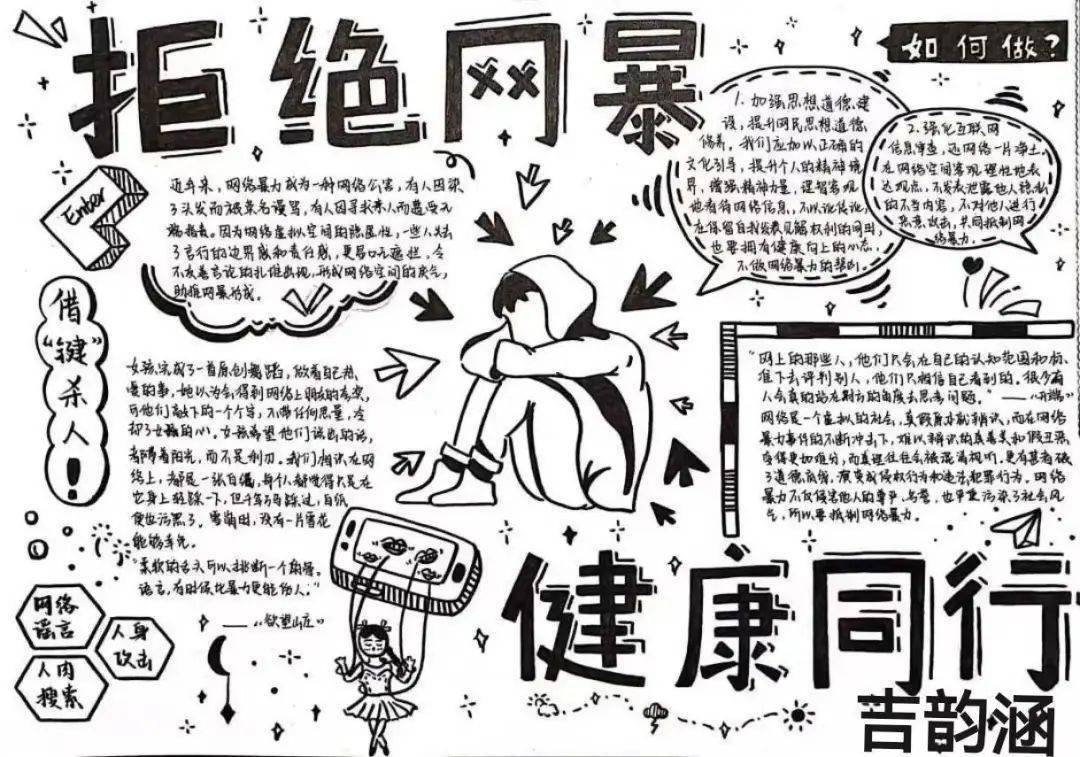 拒绝网暴
如何做?
1. 加强思想道德建
设,提升网民思想道德
修养。我们应加以正确的
文化引导,提升个人的精神境
界,增强精神力量,逻智客观
地看待网络信息,不以讹传讹,
在保留自我发表见解权利的同时,
也要拥有健康向上的心态,
不做网络暴力的帮凶。
2. 强化互联网
信息审查,还网络一片净土,
在网络空间客观理性地表
达观点,不发表泄露他人隐私
的不当内容,不对他人进行
恶意攻击,共同抵制网
络暴力。
Enter
近年来,网络暴力成为一种网络公害,有人因染
了头发而被莫名谩骂,有人因寻求亲人而遭受无
端指责。因为网络虚拟空间的隐匿性,一些人失去
了言行的边界感和责任感,更易口无遮拦,令
不友善言论的扎堆出现,形成网络空间的戾气,
助推网暴形成。
借“键”杀人!
女孩完成了一首原创舞蹈,做着自己热
爱的事,她以为会得到网络上朋友的喜欢,
可他们敲下的一个个字,不带任何思量,冷
却了女孩的心。女孩希望他们说出的话,
都带着阳光,而不是利刃。我们相识在网
络上,都是一张白纸,每个人都觉得只是在
它身上轻踩一下,但千万身踩过,白纸
便也污黑了。雪崩时,没有一片雪花
能够幸免。
“柔软的舌头可以挑断一个筋骨,
语言,有时候比暴力更能伤人。”
——《欲望山庄》
“网上的那些人,他们只会在自己的认知范围和标
准下去评判别人,他们只相信自己看到的。很少有
人会真的站在对方的角度去思考问题。” ——《开端》
网络是一个虚拟的社会,真假身份难辨识,而在网络
暴力事件的不断冲击下,难以辨识的真善美和假丑恶
变得更加难分,而真理往往会被混淆视听。更有甚者破
了道德底线,演变成侵权行为和违法犯罪行为。网络
暴力不仅侵害他人的尊严、名誉,也严重污染了社会风
气,所以要抵制网络暴力。
网络
谣言
人身
攻击
人肉
搜索
健康同行
吉韵涵